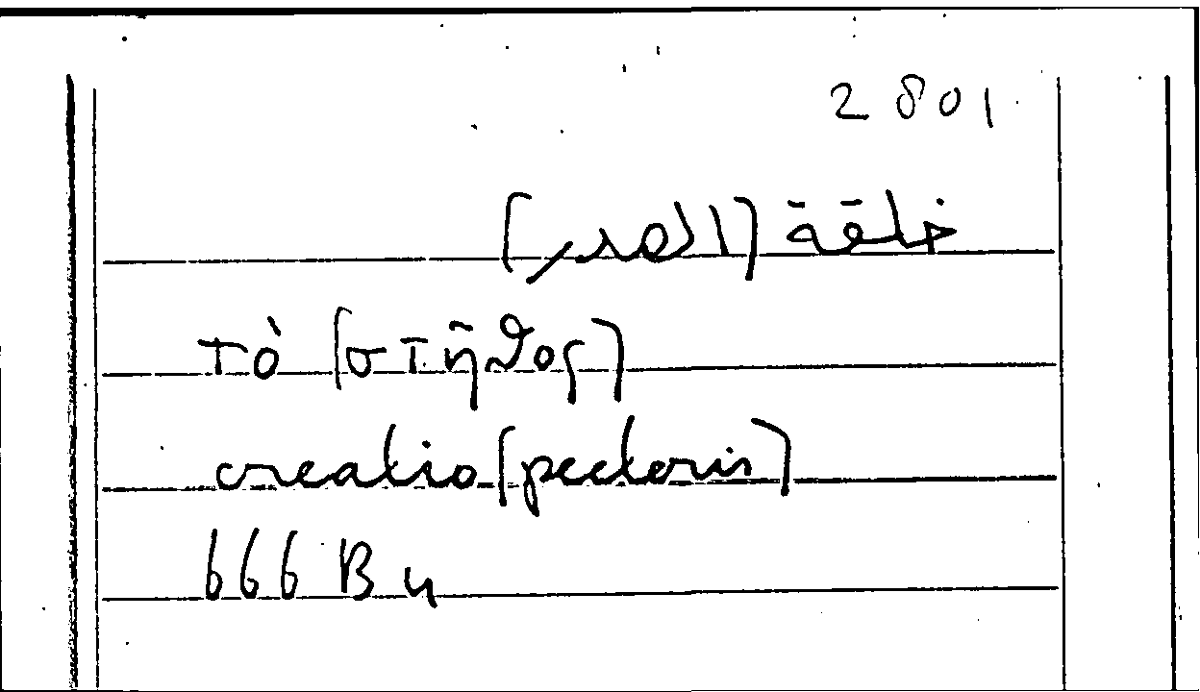 2801
خلقة (الصدر)
τὸ (στῆθος)
creatio (pectoris)
666 B 4